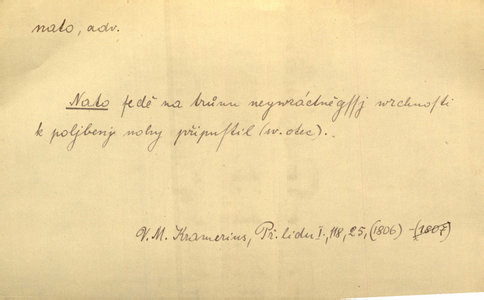 nato, adv.
Nato ſedě na trůnu neywráctněgſſj wrchnoſti
k poljbenj nohy připuſtil (sv. otec).
V. M. Kramerius, Př. lidu I., 118, 25, (1806) - (1807)